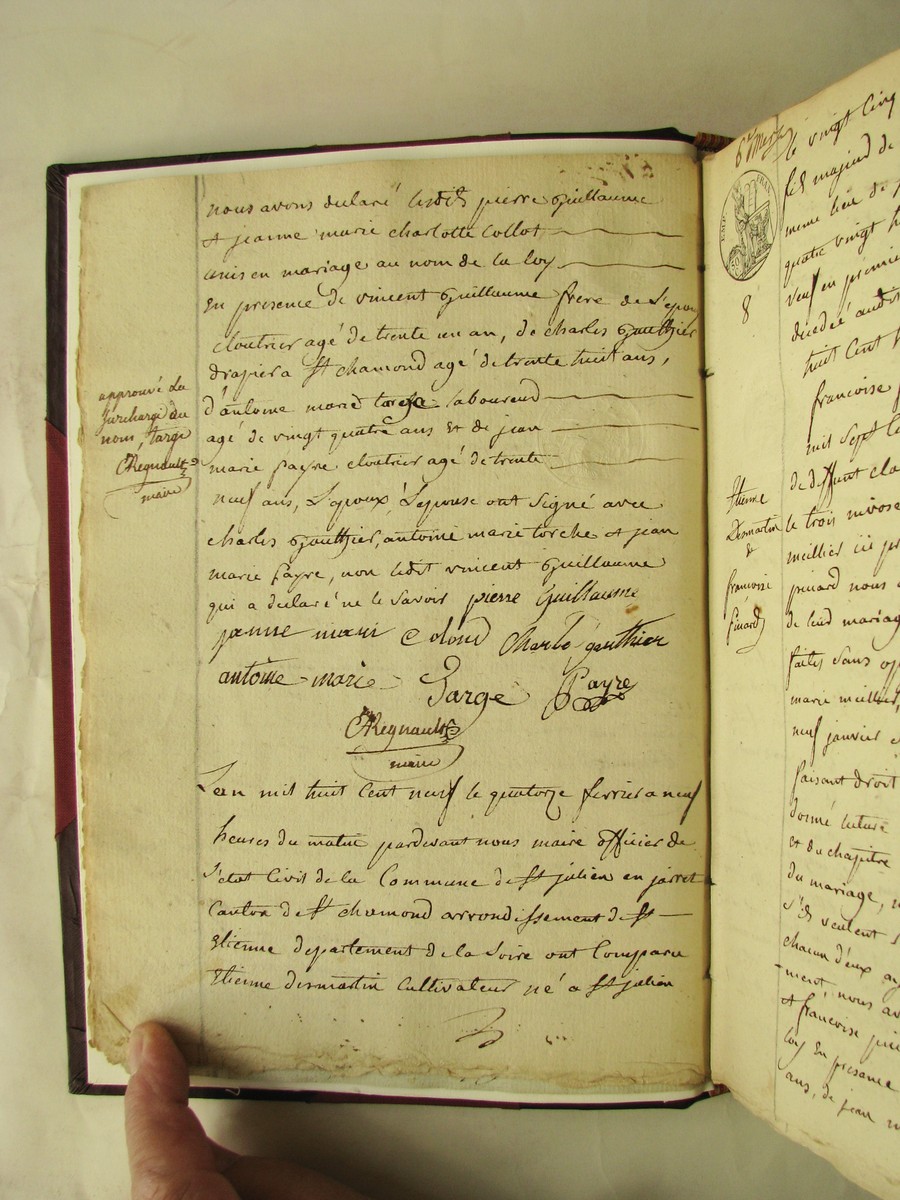 nous avons declaré lesdits pierre Guillaume
et jeanne marie charlotte Collot
unis en mariage au nom de la loy
En presence de vincent Guillaume frere de l'epoux
cloutrier agé de trente un an, de charles Gauthier
drapier a St chamond agé de trente huit ans,
d'antoine marie laboureur
agé de vingt quatre ans et de jean
marie payre cloutrier agé de trente
neuf ans, L'epoux, L'epouse ont signé avec
charles Gauthier, antoine marie torche et jean
marie payre, non ledit vincent Guillaume
qui a declaré ne le savoir pierre Guillaume
janne marie Colond Charle gauthier
antoine marie Targe Payre
CRegnault
maire
approuvé la
surcharge du
nom, targe
CRegnault
maire
L'an mil huit cent neuf le quatorze fevrier a neuf
heures du matin pardevant nous maire officier de
l'etat Civil de la Commune de St julien en jarret
Canton de St chamond arrondissement de St
Etienne departement de la Loire ont Comparu
Etienne desmartin Cultivateur né a St julien
6e Mge
EMP FRAN
8
Etienne
Desmartin
&
francoise
pinard
le vingt cinq
fils majeur de
meme lieu de
quatre vingt
neuf en premier
decedé audit
huit Cent
francoise
mil sept Ce
de deffunt cla
le trois nivose
meillier ici pr
pinard nous
de leur mariag
faites sans op
marie meillier,
neuf janvier e
faisant droit
donné lecture
et du chapitre
du mariage,
s'ils veulent s
chacun d'eux
ment, nous av
et francoise pin
loy En presence
ans, de jean m